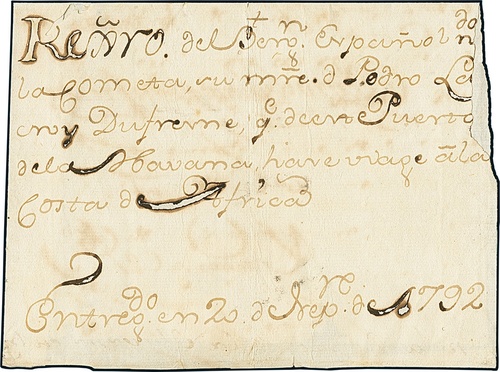 Reñro. del Berg.n Español
la Cometa, su mre. d.n Pedro La
croy Dufresne, q.e de este Puerto
de la Havana, hace viage a la
Costa de Africa
Entreg.do en 20. de Sep.re de 1792